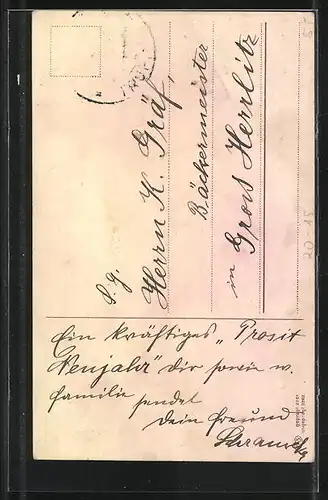 S. g.
Herrn K. Gräf,
Bäckermeister
in Gross Herrlitz
Ein kräftiges „Prosit
Neujahr" dir sowie w.
Familie sendet
Dein Freund
20-15